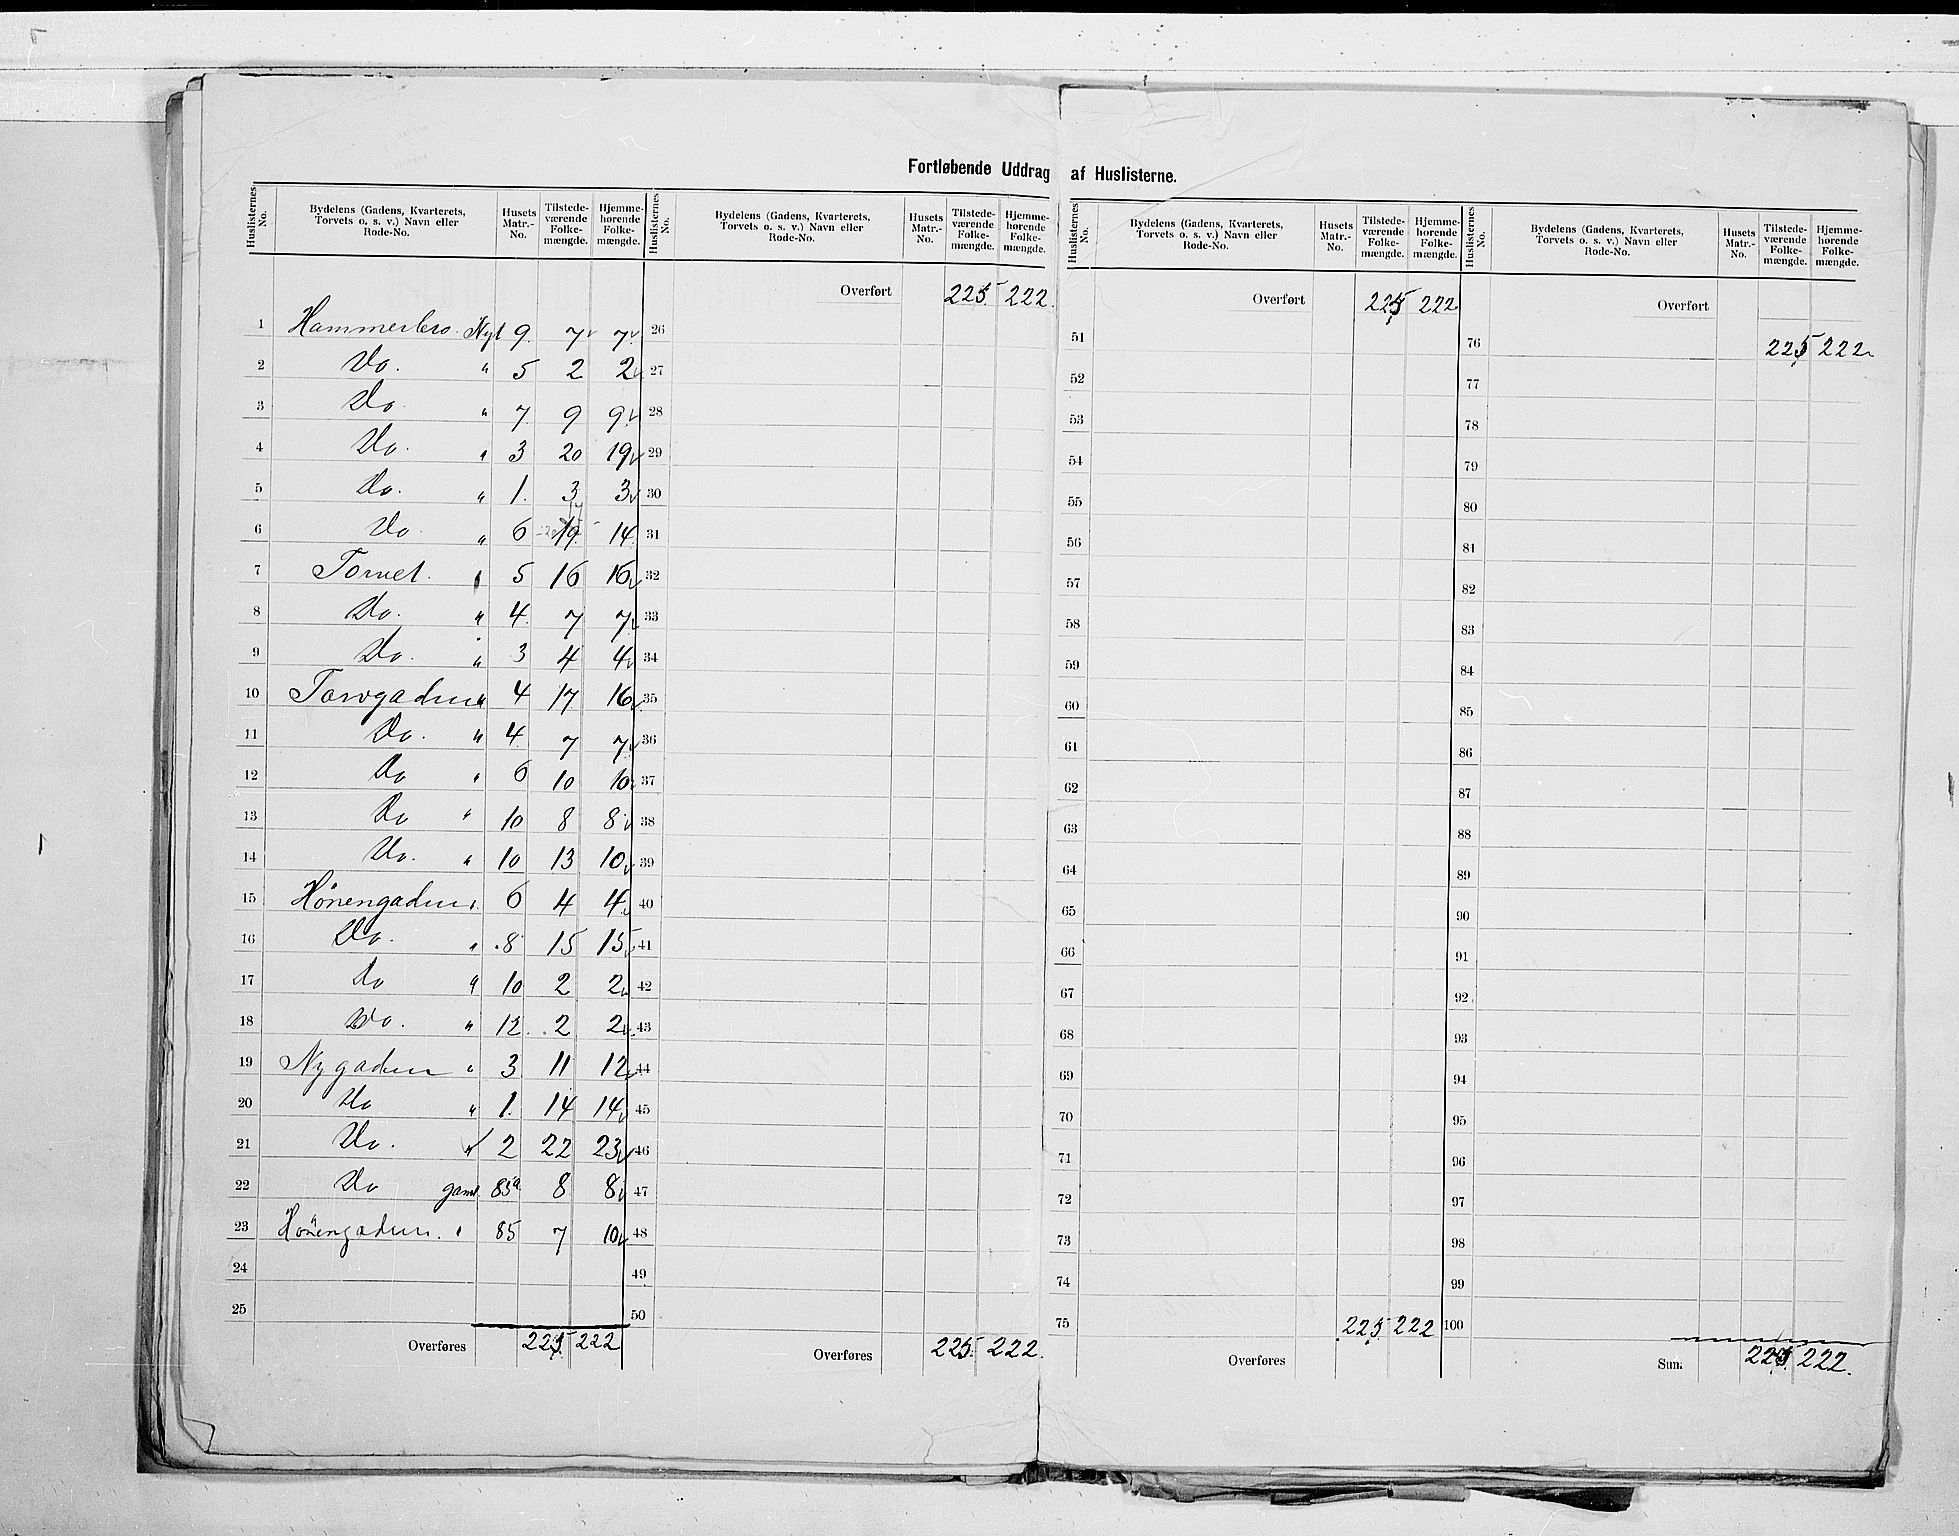 Fortløbende Uddrag af Huslisterne.
Huslisternes No. | Bydelens (Gadens, Kvarterets, Torvets o. s. v.) Navn eller Rode-No. | Husets Matr.-No. | Tilstedeværende Folkemængde. | Hjemmehørende Folkemængde. | Huslisternes No. | Bydelens (Gadens, Kvarterets, Torvets o. s. v.) Navn eller Rode-No. | Husets Matr.-No. | Tilstedeværende Folkemængde. | Hjemmehørende Folkemængde. | Huslisternes No. | Bydelens (Gadens, Kvarterets, Torvets o. s. v.) Navn eller Rode-No. | Husets Matr.-No. | Tilstedeværende Folkemængde. | Hjemmehørende Folkemængde. | Huslisternes No. | Bydelens (Gadens, Kvarterets, Torvets o. s. v.) Navn eller Rode-No. | Husets Matr.-No. | Tilstedeværende Folkemængde. | Hjemmehørende Folkemængde.
Overført 225 222. Overført 225 222 Overført
1 Hammerbro. Nyt 9. 7 7 26 51 76 225 222
2 Do. " 5 2 2 27 52 77
3 Do. " 7 9 9 28 53 78
4 Do. " 3 20 19 29 54 79
5 Do. " 1. 3 3 30 55 80
6 Do. " 6 19 14 31 56 81
7 Torvet. " 5 16 16 32 57 82
8 Do. " 4 7 7 33 58 83
9 Do. " 3 4 4 34 59 84
10 Torvgaden " 4 17 16 35 60 85
11 Do. " 4 7 7 36 61 86
12 Do " 6 10 10 37 62 87
13 Do " 10 8 8 38 63 88
14 Do. " 10 13 10 39 64 89
15 Hönengaden " 6 4 4 40 65 90
16 Do. " 8 15 15 41 66 91
17 Do " 10 2 2 42 67 92
18 Do. " 12 2 2 43 68 93
19 Nygaden " 3 11 12 44 69 94
20 Do " 1. 14 14 45 70 95
21 Do. " 2 22 23 46 71 96
22 Do gaml 85a 8 8 47 72 97
23 Hönengaden. " 85 7 10 48 73 98
24 49 74 99
25 50 75 225 222 100
Overføres 225 222 Overføres 225 222. Overføres Sum. 225 222.